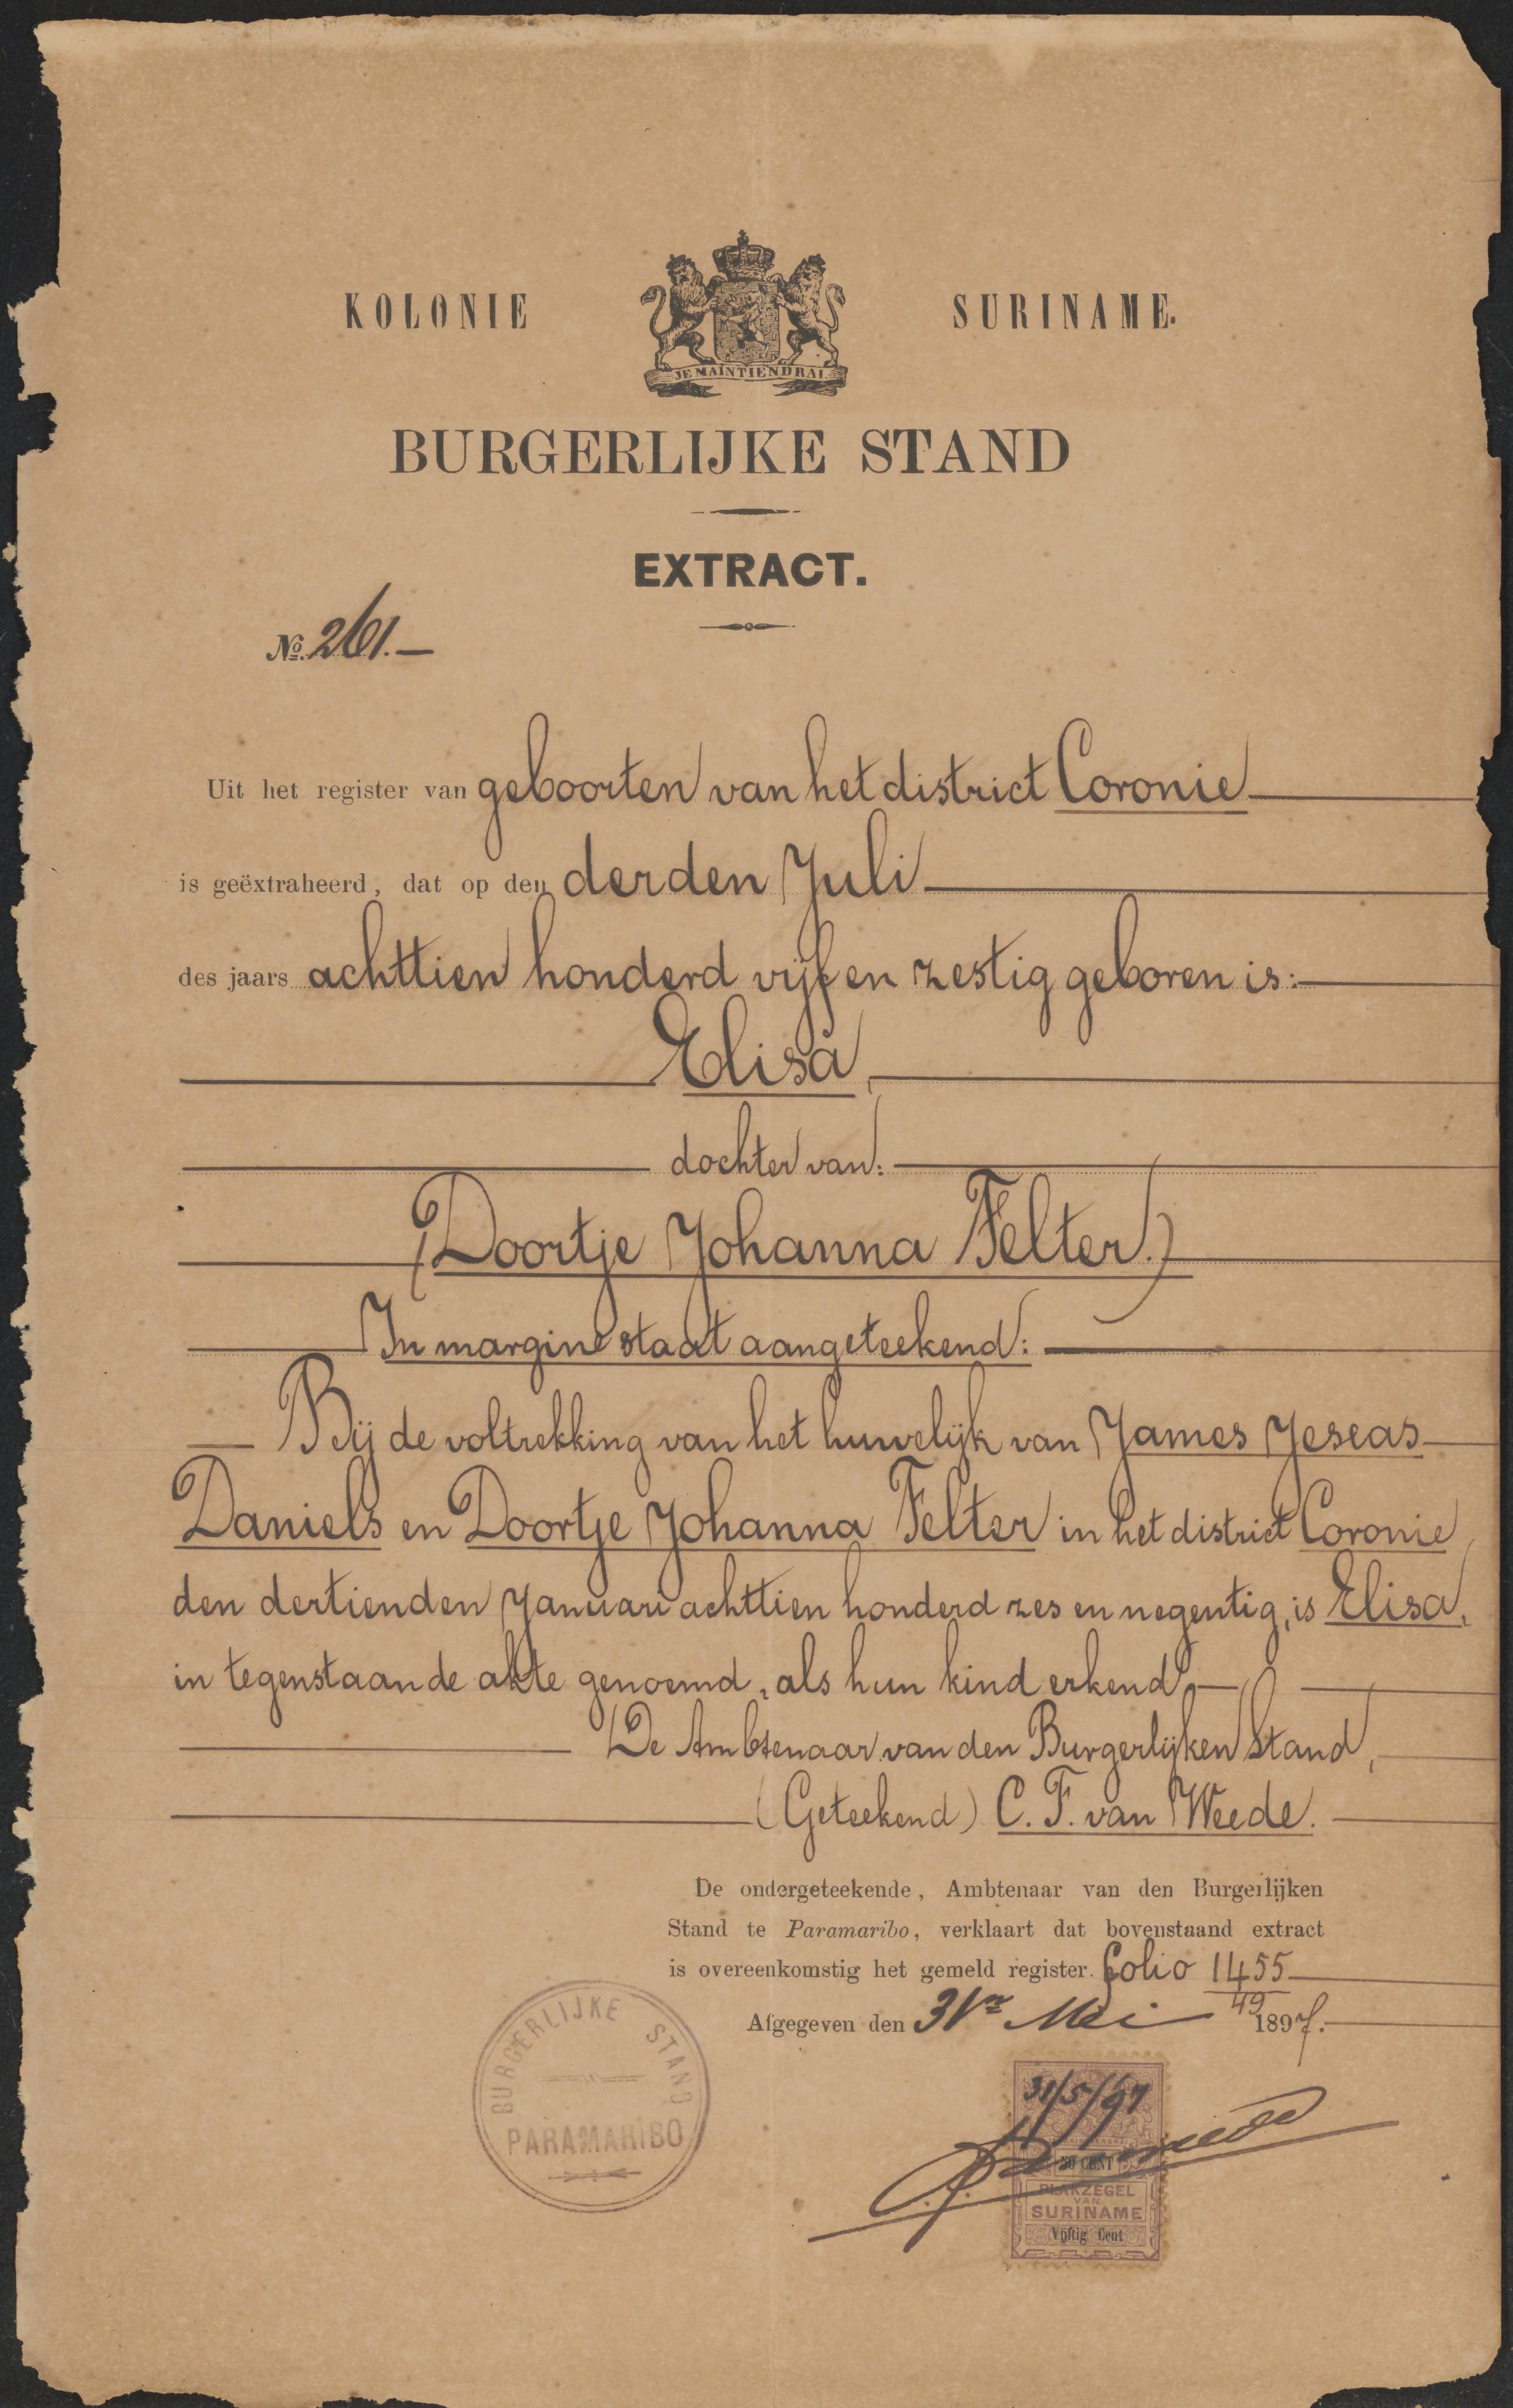 KOLONIE SURINAME.
JE MAINTIENDRAI
BURGERLIJKE STAND
EXTRACT.
No. 261.—
Uit het register van geboorten van het district Coronie
is geëxtraheerd, dat op den derden Juli
des jaars achttien honderd vijf en zestig geboren is:
Elisa,
dochter van:
(Doortje Johanna Felter.)
In margine staat aangeteekend:
Bij de voltrekking van het huwelijk van James Jeseas
Daniels en Doortje Johanna Felter in het district Coronie
den dertienden Januari achttien honderd zes en negentig, is Elisa,
in tegenstaande akte genoemd, als hun kind erkend.
De Ambtenaar van den Burgerlijken Stand,
(Geteekend) C. F. van Weede.
De ondergeteekende, Ambtenaar van den Burgerlijken
Stand te Paramaribo, verklaart dat bovenstaand extract
is overeenkomstig het gemeld register. folio 1455
49
Afgegeven den 31en Mei 1897.
BURGERLIJKE STAND
PARAMARIBO
31/5/97
50 CENT
PLAKZEGEL
VAN
SURINAME
Vijftig Cent